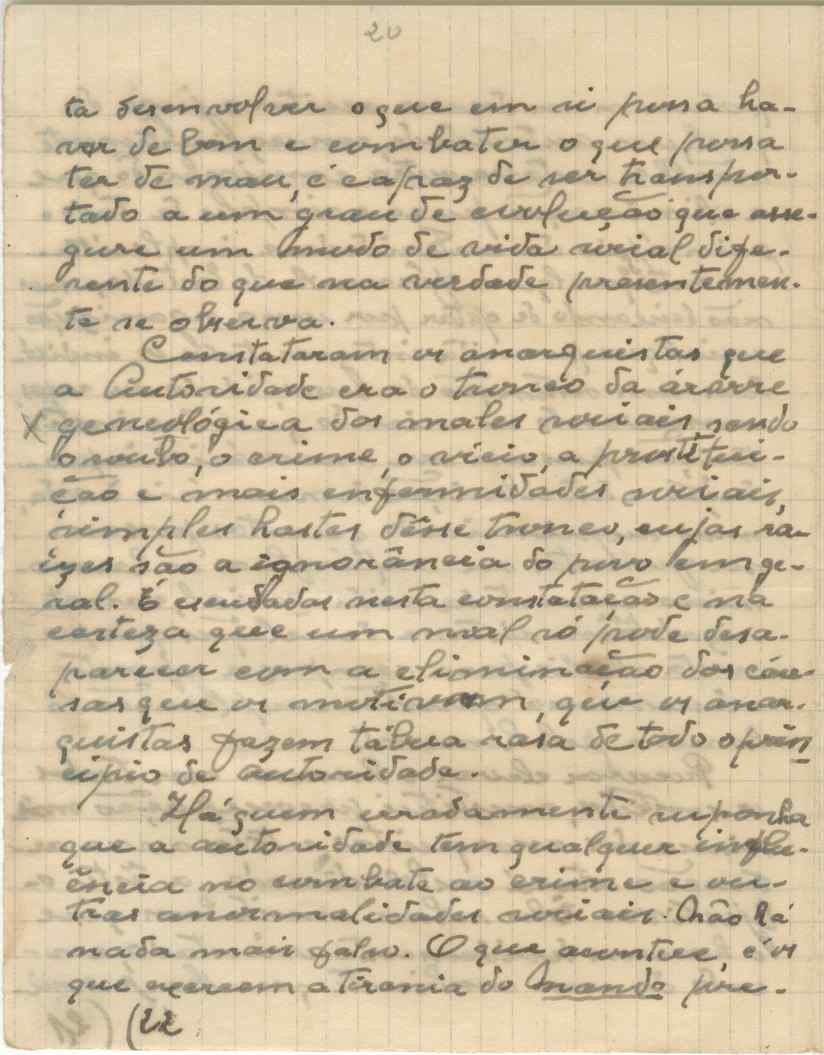 20
ta desenvolver o que em si possa ha-
ver de bom e combater o que possa
ter de mau, é capaz de ser transpor-
tado a um grau de evolução que asse-
gure um modo de vida social dife-
rente do que na verdade presentemen-
te se observa.
Constataram os anarquistas que
a Autoridade era o tronco da árvore
X geneológica dos males sociais, sendo
o roubo, o crime, o vício, a prostitui-
ção e mais enfermidades sociais,
simples hastes dêsse tronco, cujas ra-
ízes são a ignorância do povo em ge-
ral. E escudados nesta constatação e na
certeza que um mal só pode desa-
parecer com a eliminação das cau-
sas que os motivam, que os anar-
quistas fazem tábua rasa de todo o prin
cipio de autoridade.
Há quem erradamente suponha
que a autoridade tem qualquer influ-
ência no combate ao crime e ou-
tras anormalidades sociais. Não há
nada mais falso. O que acontece, é os
que exercem a tirania do Mando pre-
(22